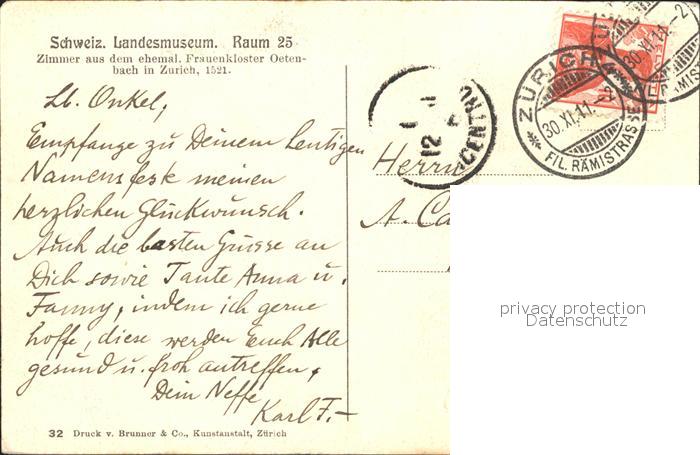 Schweiz. Landesmuseum. Raum 25
Zimmer aus dem ehemal. Frauenkloster Oeten-
bach in Zurich, 1521.
Lb. Onkel,
Empfange zu Deinem heutigen
Namensfeste meinen
herzlichen Glückwunsch.
Auch die besten Grüsse an
Dich sowie Tante Anna u.
Fanny, indem ich gerne
hoffe, diese werden Euch Alle
gesund u. froh antreffen,
Dein Neffe
Karl F.-
32 Druck v. Brunner & Co., Kunstanstalt, Zürich
ZÜRICH
30.XI.11.-2
FIL. RÄMISTRASSE
30.XI.11.-2
RÄMIST
1
12
CENTRO
Herrn
A. Ca
privacy protection
Datenschutz